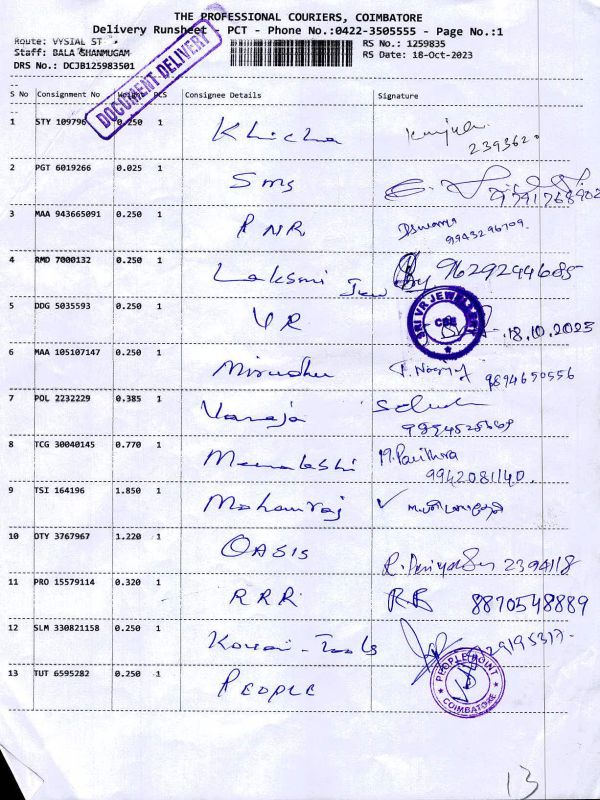 THE PROFESSIONAL COURIERS, COIMBATORE
Delivery Runsheet - PCT - Phone No.:0422-3505555 - Page No.:1
Route: VYSIAL ST
RS No.: 1259835
Staff: BALA SHANMUGAM
RS Date: 18-Oct-2023
DRS No.: DCJB125983501
DOCUMENT DELIVERY
S No Consignment No Weight PCS Consignee Details Signature
1 STY 109796 0.250 1 Khicha
239362
2 PGT 6019266 0.025 1 Sms
3 MAA 943665091 0.250 1 PNR 9943296709.
4 RMD 7000132 0.250 1 Lakshmi Jew 96292944685
5 DDG 5035593 0.250 1 VR 18.10.2023
SRI VR JEWELLERY CBE
6 MAA 105107147 0.250 1 Mirudhu 9894650556
7 POL 2232229 0.385 1 Vanaja
8 TCG 30040145 0.770 1 Meenakshi M. Pavithra
9942081140.
9 TSI 164196 1.850 1 Mohanraj
10 OTY 3767967 1.220 1 OASIS 2394118
11 PRO 15579114 0.320 1 RRR R.R 8870548889
12 SLM 330821158 0.250 1 Kovai-Tools
13 TUT 6595282 0.250 1 PEOPLE
PEOPLE POINT COIMBATORE
13